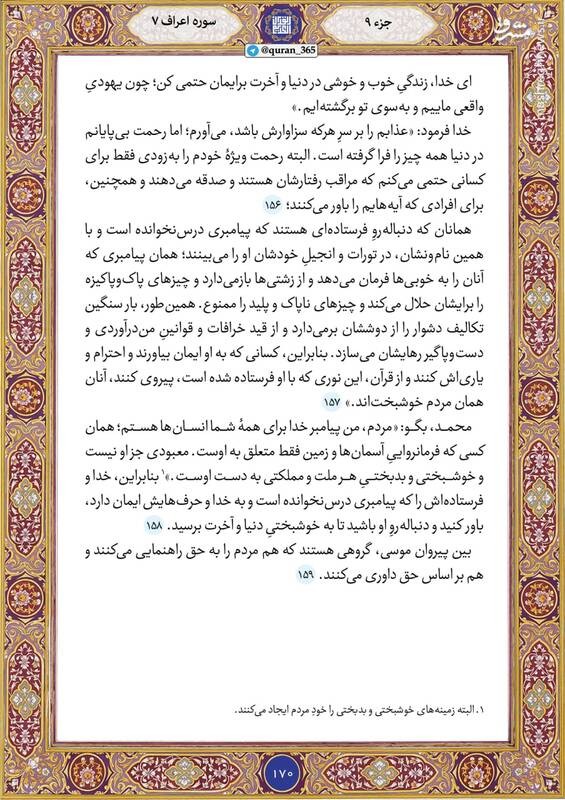 جزء ۹
سوره اعراف ۷
@quran_365
مشرق
ای خدا، زندگیِ خوب و خوشی در دنیا و آخرت برایمان حتمی کن؛ چون یهودیِ
واقعی ماییم و به‌سوی تو برگشته‌ایم.»
خدا فرمود: «عذابم را بر سرِ هرکه سزاوارش باشد، می‌آورم؛ اما رحمت بی‌پایانم
در دنیا همه چیز را فرا گرفته است. البته رحمت ویژهٔ خودم را به‌زودی فقط برای
کسانی حتمی می‌کنم که مراقب رفتارشان هستند و صدقه می‌دهند و همچنین،
برای افرادی که آیه‌هایم را باور می‌کنند؛ ۱۵۶
همانان که دنباله‌روِ فرستاده‌ای هستند که پیامبری درس‌نخوانده است و با
همین نام‌ونشان، در تورات و انجیلِ خودشان او را می‌بینند؛ همان پیامبری که
آنان را به خوبی‌ها فرمان می‌دهد و از زشتی‌ها بازمی‌دارد و چیزهای پاک‌وپاکیزه
را برایشان حلال می‌کند و چیزهای ناپاک و پلید را ممنوع. همین‌طور، بار سنگین
تکالیف دشوار را از دوششان برمی‌دارد و از قید خرافات و قوانینِ من‌درآوردی و
دست‌وپاگیر رهایشان می‌سازد. بنابراین، کسانی که به او ایمان بیاورند و احترام و
یاری‌اش کنند و از قرآن، این نوری که با او فرستاده شده است، پیروی کنند، آنان
همان مردم خوشبخت‌اند.» ۱۵۷
محمد، بگو: «مردم، من پیامبر خدا برای همهٔ شما انسان‌ها هستم؛ همان
کسی که فرمانرواییِ آسمان‌ها و زمین فقط متعلق به اوست. معبودی جز او نیست
و خوشبختی و بدبختیِ هر ملت و مملکتی به دست اوست.»۱ بنابراین، خدا و
فرستاده‌اش را که پیامبری درس‌نخوانده است و به خدا و حرف‌هایش ایمان دارد،
باور کنید و دنباله‌روِ او باشید تا به خوشبختیِ دنیا و آخرت برسید. ۱۵۸
بین پیروان موسی، گروهی هستند که هم مردم را به حق راهنمایی می‌کنند و
هم بر اساس حق داوری می‌کنند. ۱۵۹
۱. البته زمینه‌های خوشبختی و بدبختی را خودِ مردم ایجاد می‌کنند.
۱۷۰